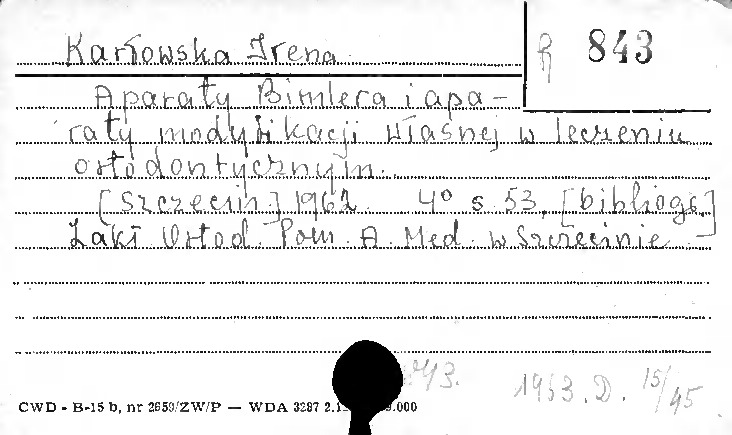 Karłowska Irena
R 843
Aparaty Bimlera i apa-
raty modyfikacji własnej w leczeniu
ortodontycznym.
[Szczecin] 1962 4° s 53, [bibliogr.]
Zakł Ortod. Pom. A. Med. w Szczecinie
43.
1963. D. 15/45
CWD - B-15 b, nr 2659/ZW/P — WDA 3287 2.1 .000